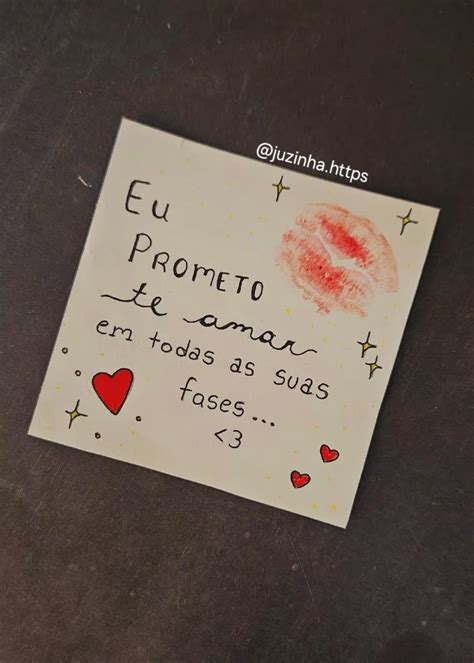 @juzinha.https
Eu
PROMETO
te amar
em todas as suas
fases...
<3